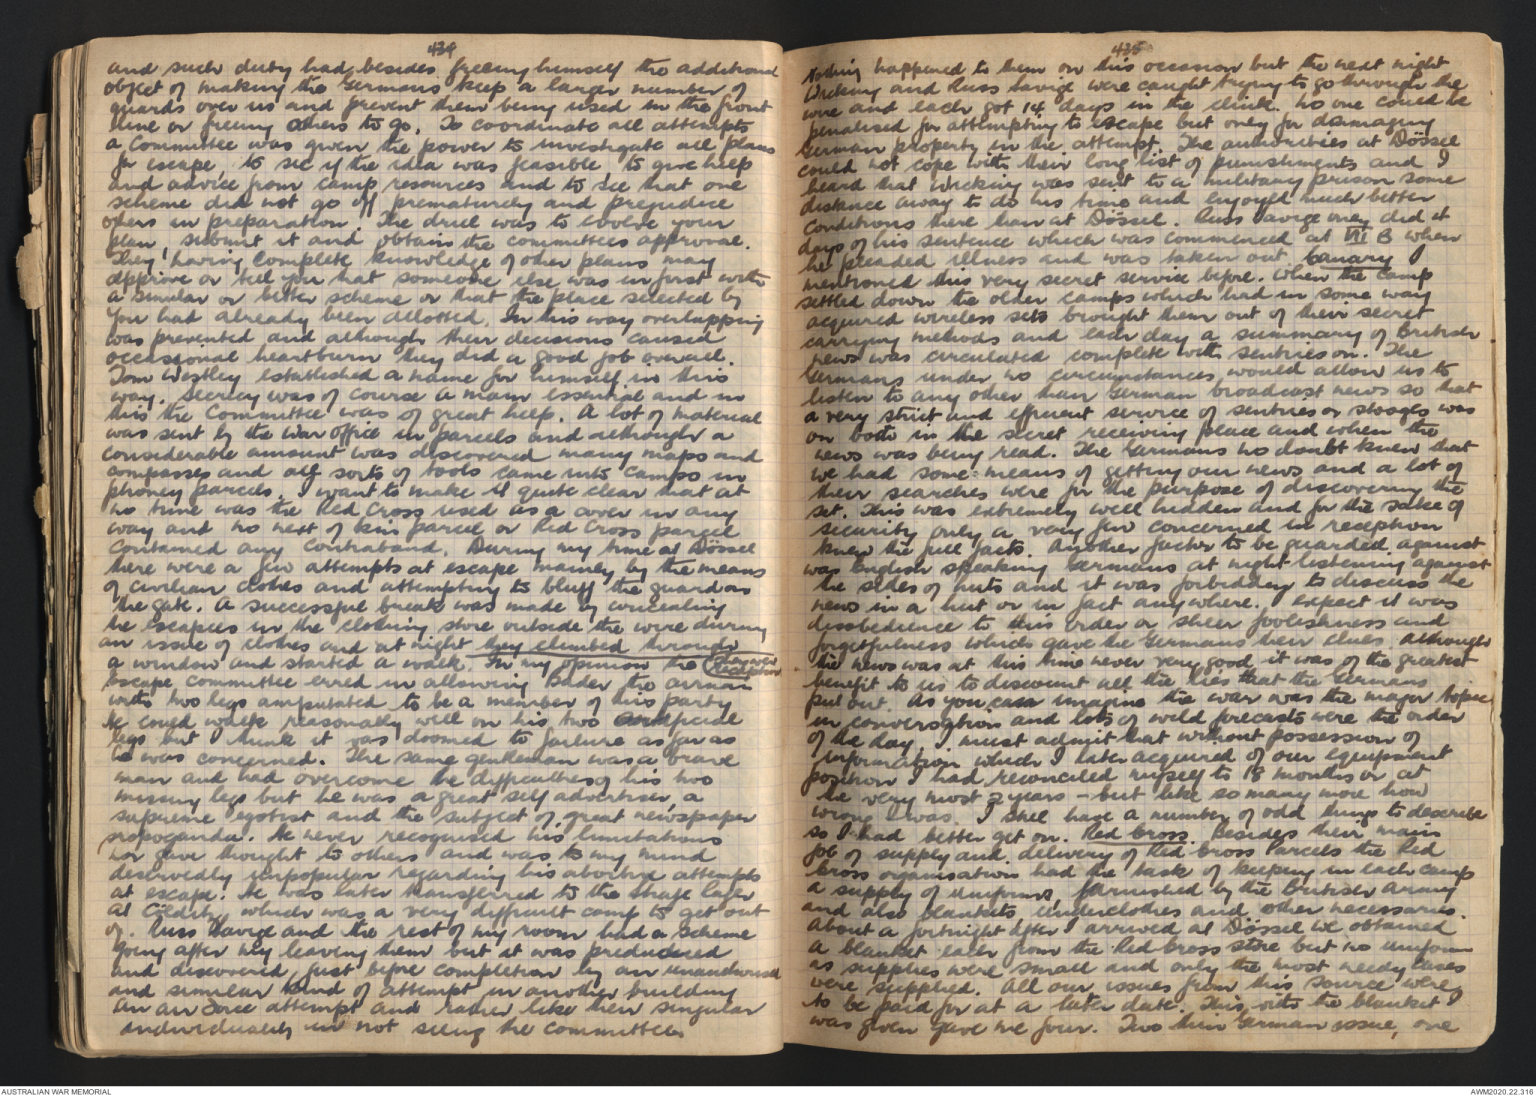 434
and such duty had besides freeing himself the additional
object of making the Germans keep a larger number of
guards over us and prevent them being used in the front
line or freeing others to go. To coordinate all attempts
a committee was given the power to investigate all plans
for escape, to see if the idea was feasible to give help
and advice from camp resources and to see that one
scheme did not go off prematurely and prejudice
others in preparation. The drill was to evolve your
plan, submit it and obtain the committees approval.
They, having complete knowledge of other plans may
approve or tell you that someone else was in first with
a similar or better scheme or that the place selected by
you had already been allotted. In this way overlapping
was prevented and although their decisions caused
occasional heartburn they did a good job overall.
Tom Westley established a name for himself in this
way. Secrecy was of course a main essential and in
this the Committee was of great help. A lot of material
was sent by the War Office in parcels and although a
considerable amount was discovered many maps and
compasses and all sorts of tools came into camps in
phoney parcels. I want to make it quite clear that at
no time was the Red Cross used as a cover in any
way and no next of kin parcel or Red Cross parcel
contained any contraband. During my time at Dössel
there were a few attempts at escape mainly by the means
of civilian clothes and attempting to bluff the guard on
the gate. A successful break was made by concealing
the escapees in the clothing store outside the wire during
an issue of clothes and at night they climbed through
a window and started a walk. In my opinion the
escape committee erred in allowing Bader the airman
with two legs amputated to be a member of this party
He could walk reasonably well on his two artificial
legs but I think it was doomed to failure as far as
he was concerned. The same gentleman was a brave
man and had overcome the difficulties of his two
missing legs but he was a great self advertiser, a
supreme egotist and the subject of great newspaper
propoganda. He never recognised his limitations
nor gave thought to others and was to my mind
deservedly unpopular regarding his abortive attempts
at escape. He was later transferred to the Strafe lager
at Colditz which was a very difficult camp to get out
of. Russ Savige and the rest of my room had a scheme
going after my leaving them but it was
and discovered just before completion by an unauthorised
and similar kind of attempt in another building
an air Force attempt and rather like their singular
individuality in not seeing the committee
435
Nothing happened to them on this occasion but the next night
Wicking and Russ Savige were caught trying to go through the
wire and each got 14 days in the clink. No one could be
penalised for attempting to escape but only for damaging
German property in the attempt. The authorities at Dössel
could not cope with their long list of punishments and I
heard that Wicking was sent to a military prison some
distance away to do his time and enjoyed much better
conditions there than at Dössel. Russ Savige only did
days of his sentence which was commenced at VII B when
he pleaded illness and was taken out. Canary I
mentioned this very secret service before. When the camp
settled down the older camps which had in some way
acquired wireless sets brought them out of their secret
carrying methods and each day a summary of British
news was circulated complete with sentries on. The
Germans under no circumstances would allow us to
listen to any other than German broadcast news so that
a very strict and efficient service of sentries or stooges was
on both in the secret receiving place and when the
news was being read. The Germans no doubt knew that
we had some means of getting our news and a lot of
their searches were for the purpose of discovering the
set. This was extremely well hidden and for the sake of
security only a very few concerned in reception
knew the full facts. Another factor to be guarded against
was English speaking Germans at night listening against
the sides of huts and it was forbidden to discuss the
news in a hut or in fact anywhere. I expect it was
disobedience to this order or sheer foolishness and
forgetfulness which gave the Germans their clues. Although
the news was at this time never very good it was of the greatest
benefit to us to discount all the lies that the Germans
put out. As you can imagine the war was the major topic
in conversation and lots of wild forecasts were the order
of the day. I must admit that without possession of
information which I later acquired of our equipment
position I had reconciled myself to 18 months or at
the very most 2 years - but like so many more how
wrong I was. I still have a number of odd things to describe
so I had better get on. Red Cross. Besides their main
job of supply and delivery of Red Cross Parcels the Red
Cross organisation had the task of keeping in each camp
a supply of uniforms, furnished by the British Army
and also blankets, underclothes and other necessaries.
About a fortnight after I arrived at Dössel we obtained
a blanket each from the Red Cross store but no uniform
as supplies were small and only the most needy cases
were supplied. All our issues from this source were
to be paid for at a later date. This, with the blanket I
was given gave me four. Two thin German issue, one
AUSTRALIAN WAR MEMORIAL
AWM2020.22.316